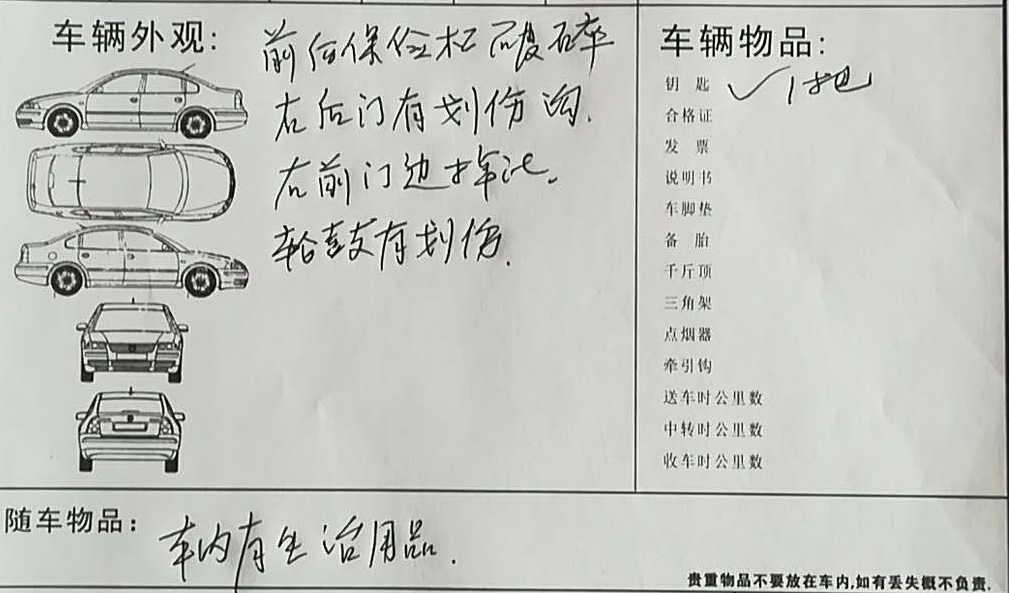 车辆外观:
前后保险杠破碎
右后门有划伤沟.
右前门边掉漆.
轮鼓有划伤.
车辆物品:
钥匙 ✓ 1把
合格证
发票
说明书
车脚垫
备胎
千斤顶
三角架
点烟器
牵引钩
送车时公里数
中转时公里数
收车时公里数
随车物品: 车内有生活用品.
贵重物品不要放在车内,如有丢失概不负责.